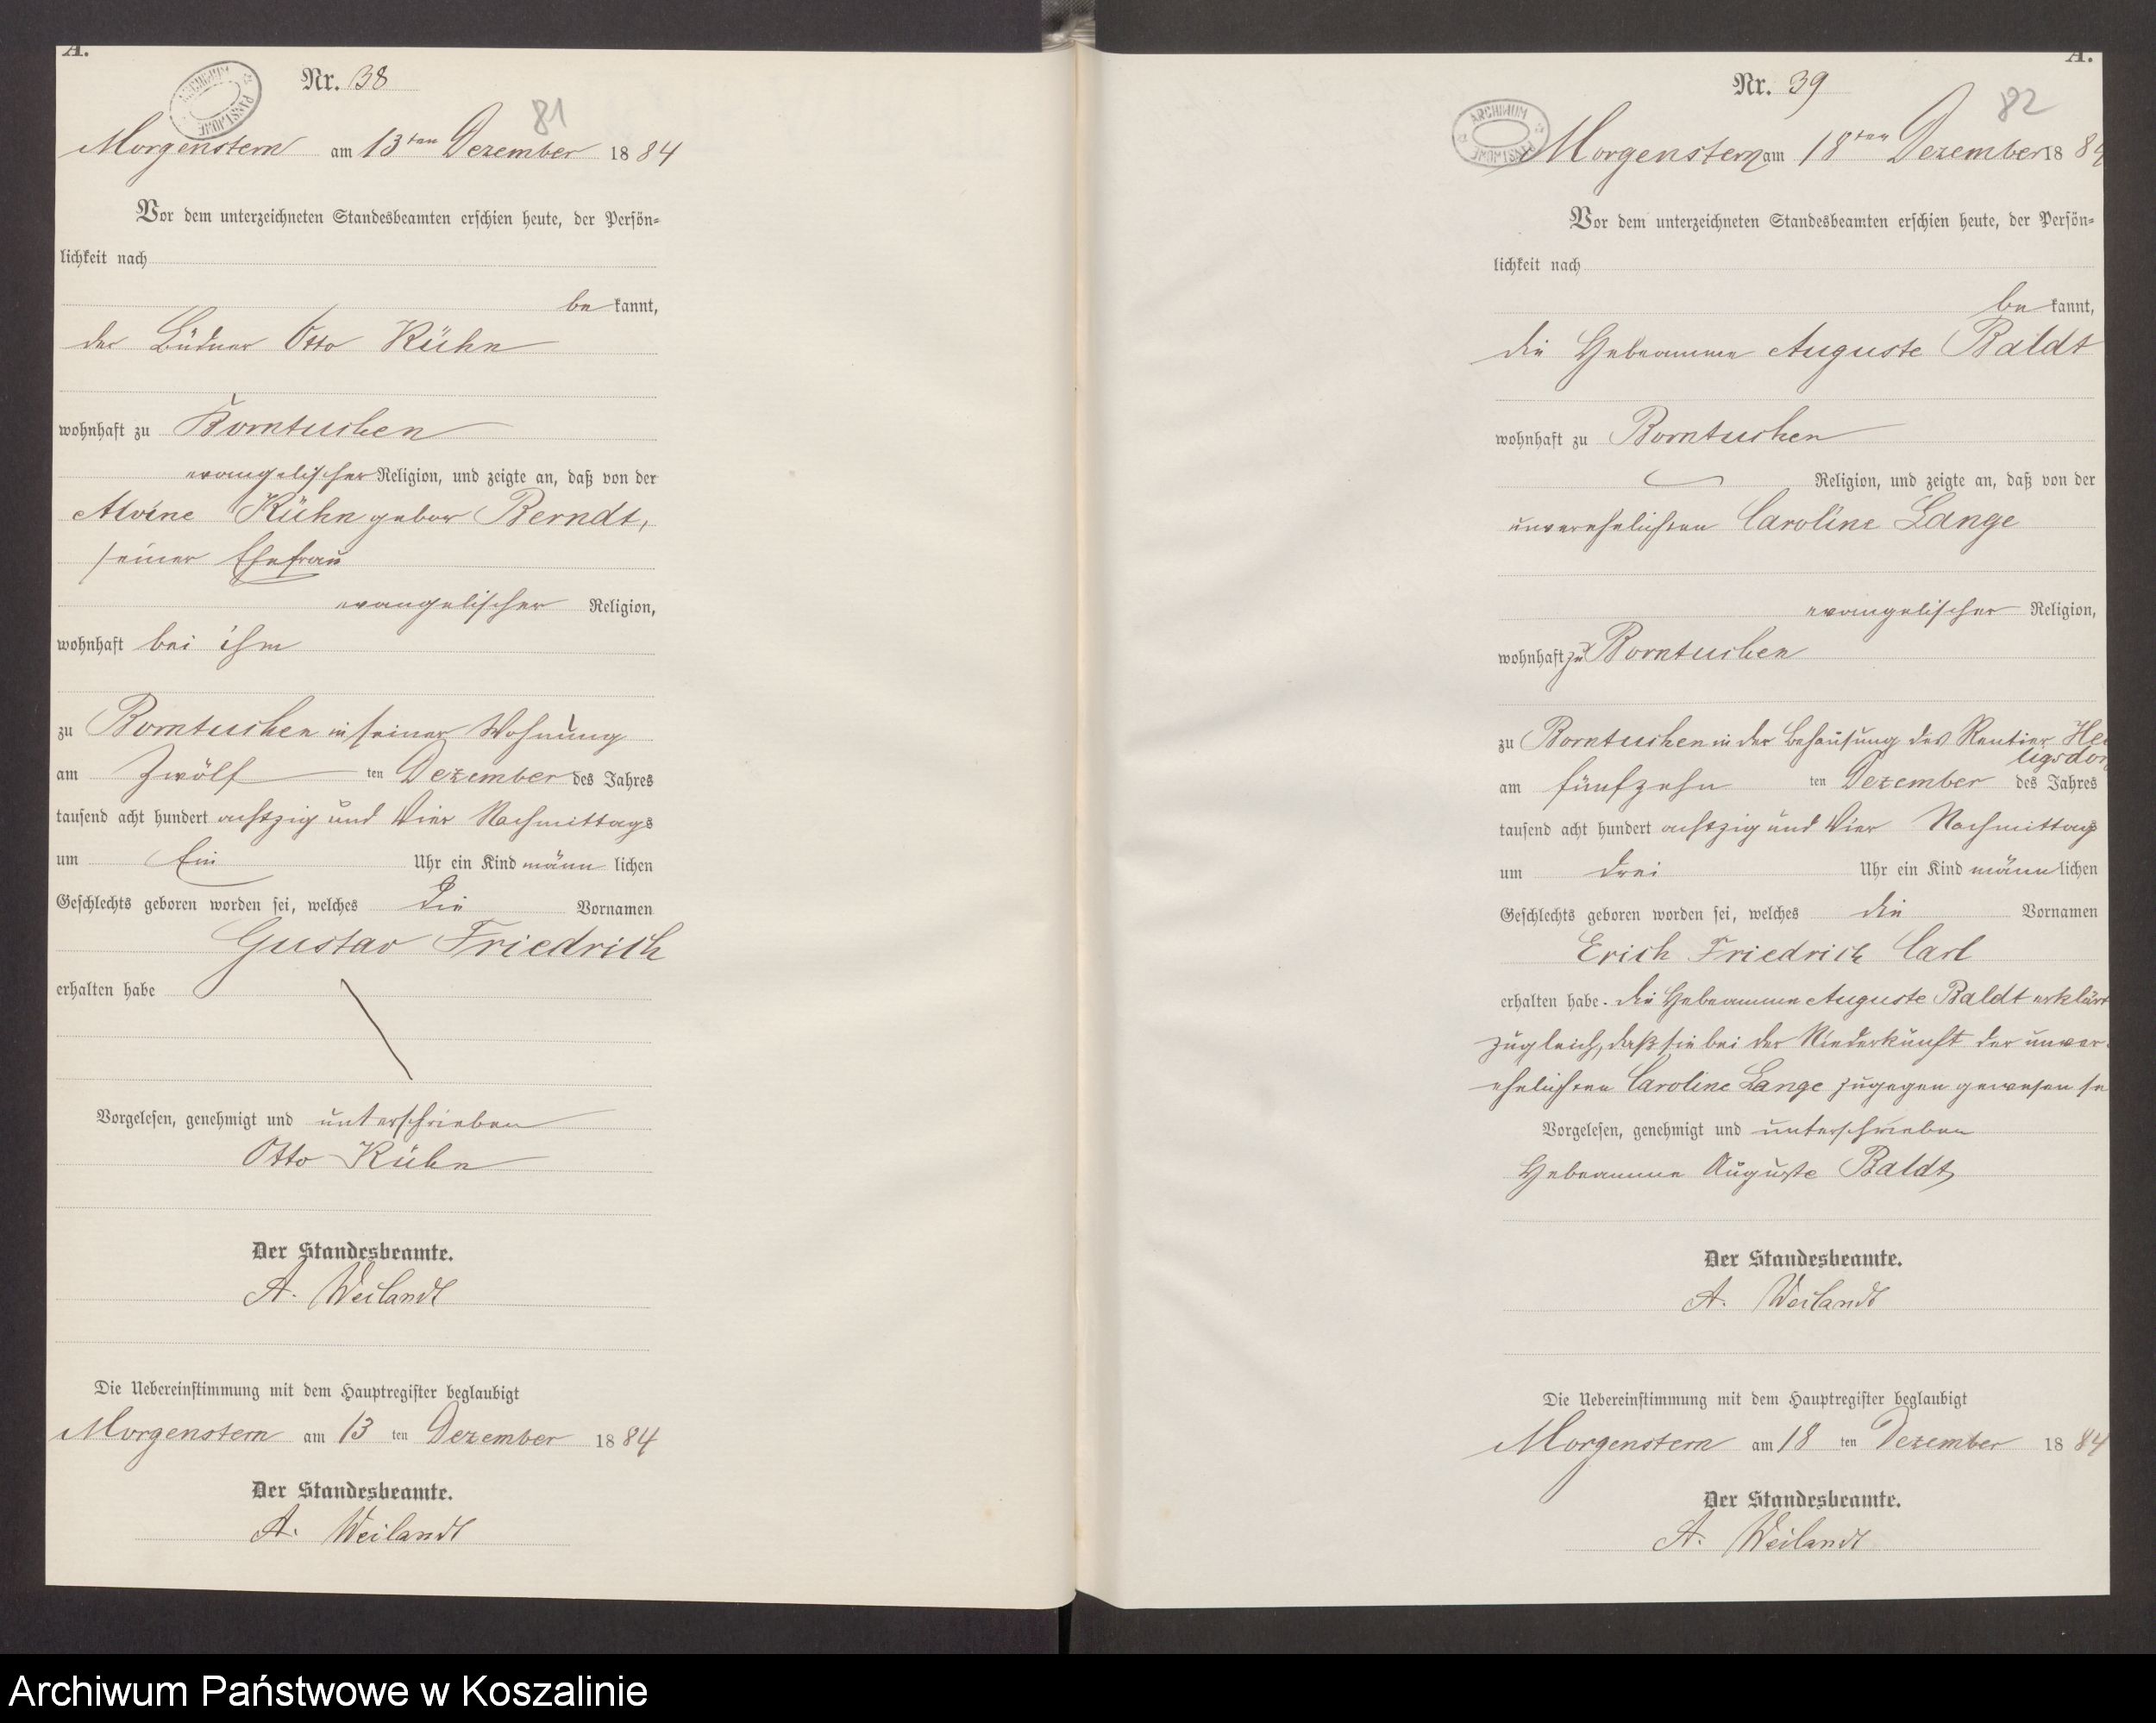 A.
Nr. 38
81
Morgenstern am 13ten Dezember 1884
Vor dem unterzeichneten Standesbeamten erschien heute, der Persön-
lichkeit nach
be kannt,
der Büdner Otto Kühn
wohnhaft zu Borntuchen
evangelischer Religion, und zeigte an, daß von der
Alvine Kühn gebor Berndt,
seiner Ehefrau
evangelischer Religion,
wohnhaft bei ihm
zu Borntuchen in seiner Wohnung
am Zwölf ten Dezember des Jahres
tausend acht hundert achtzig und Vier Nachmittags
um Ein Uhr ein Kind männ lichen
Geschlechts geboren worden sei, welches die Vornamen
Gustav Friedrich
erhalten habe
Vorgelesen, genehmigt und unterschrieben
Otto Kühn
Der Standesbeamte.
A. Weilandt
Die Uebereinstimmung mit dem Hauptregister beglaubigt
Morgenstern am 13 ten Dezember 1884
Der Standesbeamte.
A. Weilandt
A.
Nr. 39
82
ARCHIWUM PAŃSTWOWE
Morgenstern am 18ten Dezember 1884
Vor dem unterzeichneten Standesbeamten erschien heute, der Persön-
lichkeit nach
be kannt,
die Hebeamme Auguste Baldt
wohnhaft zu Borntuchen
Religion, und zeigte an, daß von der
unverehelichten Caroline Lange
evangelischer Religion,
wohnhaft zu Borntuchen
zu Borntuchen in der Behausung des Rentier
am fünfzehn ten Dezember des Jahres
tausend acht hundert achtzig und Vier Nachmittags
um drei Uhr ein Kind männ lichen
Geschlechts geboren worden sei, welches die Vornamen
Erich Friedrich Carl
erhalten habe. die Hebeamme Auguste Baldt erklärt
zugleich, daß sie bei der Niederkunft der unver-
ehelichten Caroline Lange zugegen gewesen se
Vorgelesen, genehmigt und unterschrieben
Hebeamme Auguste Baldt
Der Standesbeamte.
A. Weilandt
Die Uebereinstimmung mit dem Hauptregister beglaubigt
Morgenstern am 18 ten Dezember 1884
Der Standesbeamte.
A. Weilandt
Archiwum Państwowe w Koszalinie